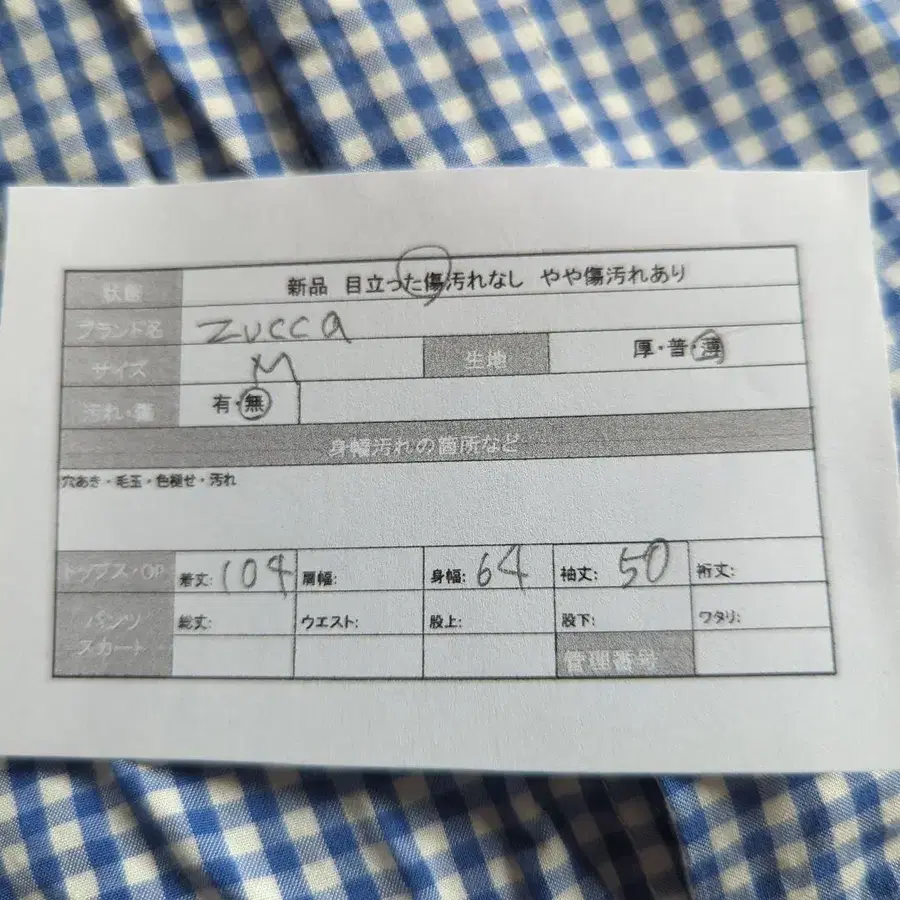 状態 新品 目立った傷汚れなし やや傷汚れあり
ブランド名 zucca
サイズ M 生地 厚・普・薄
汚れ・傷 有・無
身幅汚れの箇所など
穴あき・毛玉・色褪せ・汚れ
トップス・OP 着丈: 104 肩幅: 身幅: 64 袖丈: 50 裄丈:
パンツ 総丈: ウエスト: 股上: 股下: ワタリ:
スカート 管理番号